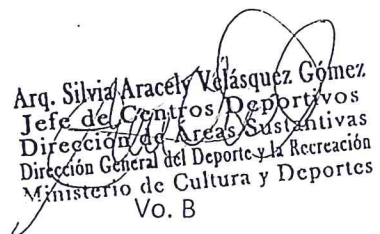 Arq. Silvia Aracely Velásquez Gómez
Jefe de Centros Deportivos
Dirección de Áreas Sustantivas
Dirección General del Deporte y la Recreación
Ministerio de Cultura y Deportes
Vo. B